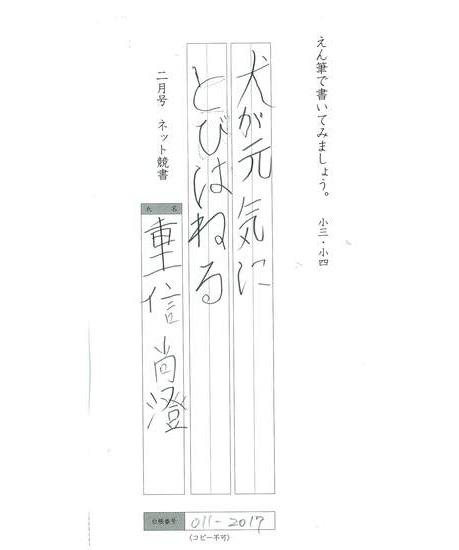 えん筆で書いてみましょう。 小三・小四
犬が元気に
とびはねる
二月号 ネット競書
氏名
重信尚澄
台帳番号 011-2017
(コピー不可)